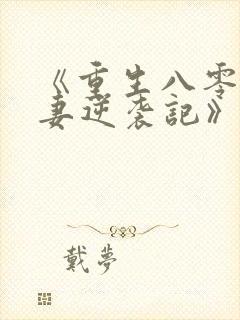 《重生八零
妻逆袭記》
戴夢